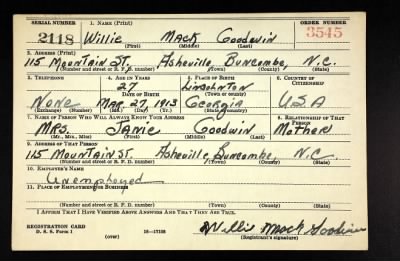 SERIAL NUMBER 1. NAME (Print) ORDER NUMBER
2118 Willie Mack Goodwin 3545
(First) (Middle) (Last)
2. ADDRESS (Print)
115 Mountain St. Asheville Buncombe, N.C.
(Number and street or R. F. D. number) (Town) (County) (State)
3. TELEPHONE 4. AGE IN YEARS 5. PLACE OF BIRTH 6. COUNTRY OF CITIZENSHIP
27 Lincolnton
DATE OF BIRTH (Town or county)
None Mar. 27, 1913 Georgia U.S.A
(Exchange) (Number) (Mo.) (Day) (Yr.) (State or country)
7. NAME OF PERSON WHO WILL ALWAYS KNOW YOUR ADDRESS 8. RELATIONSHIP OF THAT PERSON
Mrs. Janie Goodwin Mother
(Mr., Mrs., Miss) (First) (Middle) (Last)
9. ADDRESS OF THAT PERSON
115 Mountain St. Asheville Buncombe, N.C.
(Number and street or R. F. D. number) (Town) (County) (State)
10. EMPLOYER'S NAME
Unemployed
11. PLACE OF EMPLOYMENT OR BUSINESS
(Number and street or R. F. D. number) (Town) (County) (State)
I AFFIRM THAT I HAVE VERIFIED ABOVE ANSWERS AND THAT THEY ARE TRUE.
REGISTRATION CARD
D. S. S. Form 1 (over) 16—17105 Willie Mack Goodwin
(Registrant's signature)